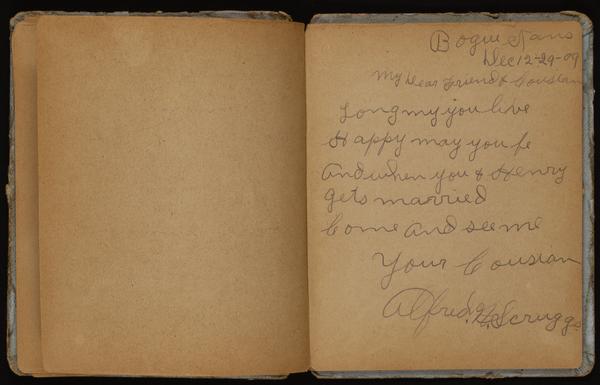 Bogue Kans
Dec 12-29-09
My Dear Friend & Cousian
Long my you live
Happy may you be
And when you & Henry
gets married
Come and see me
Your Cousian
Alfred. H. Scruggs